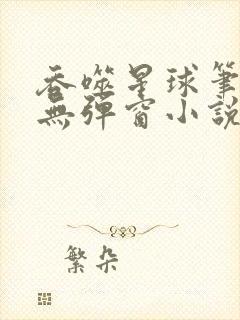 吞噬星球筆
無彈窗小說
繁朵